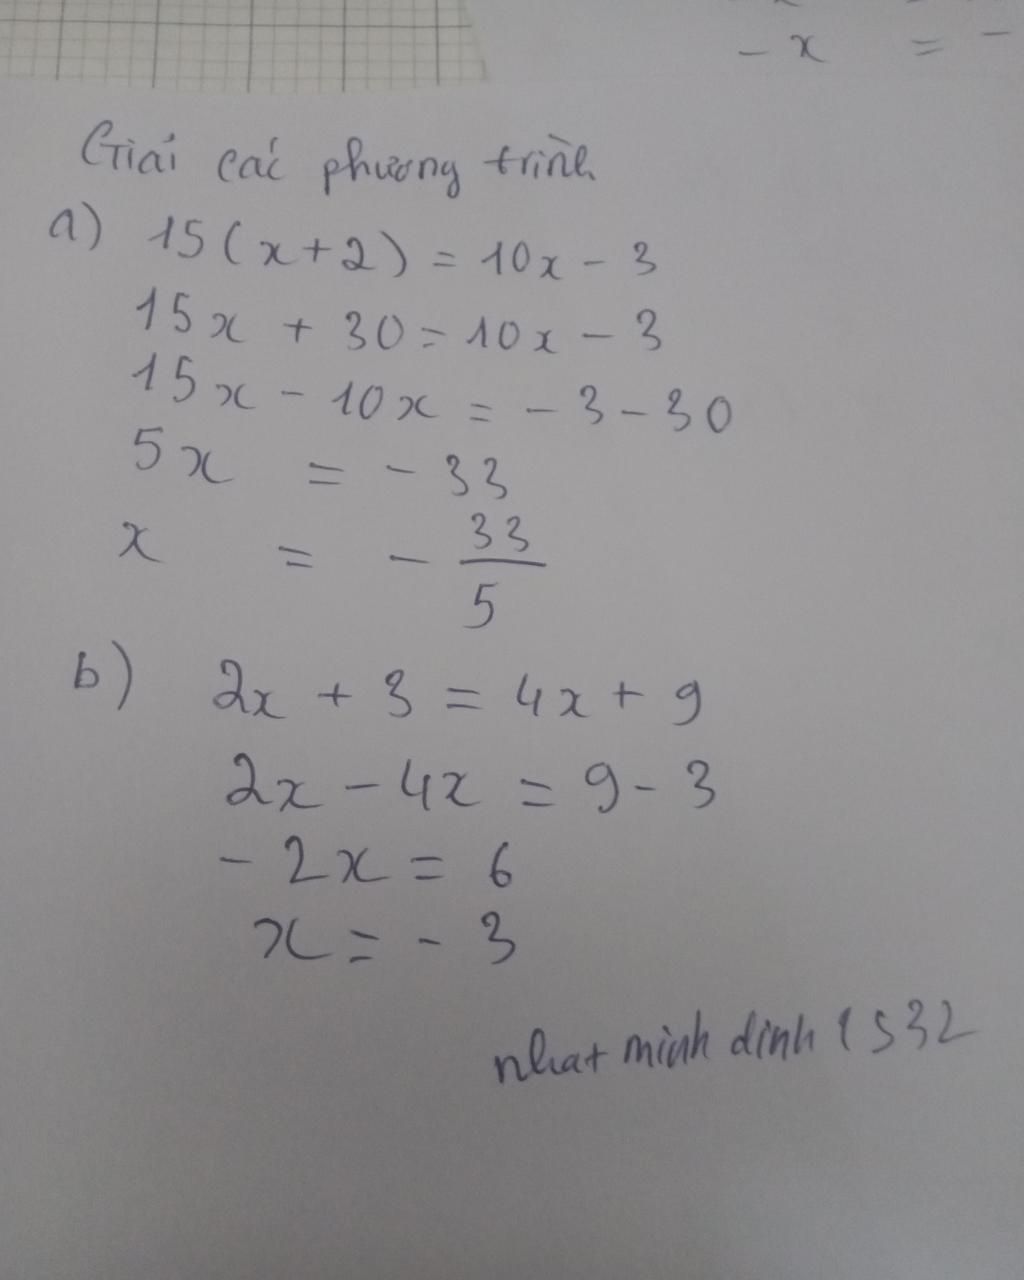 - x = -
Giải các phương trình
a) 15(x+2) = 10x - 3
15x + 30 = 10x - 3
15x - 10x = - 3 - 30
5x = - 33
x = - 33/5
b) 2x + 3 = 4x + 9
2x - 4x = 9 - 3
- 2x = 6
x = - 3
nhat minh dinh 1532